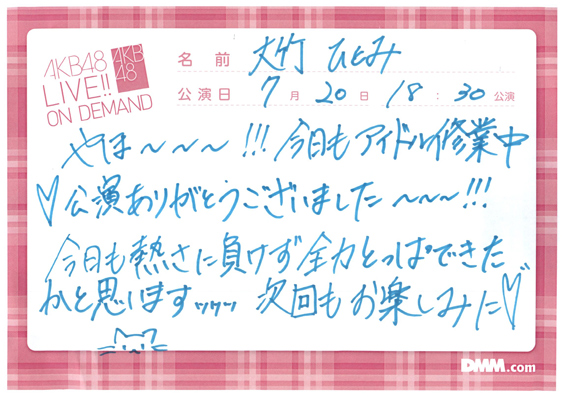 AKB48
LIVE!!
ON DEMAND
AKB
48
名前 大竹 ひとみ
公演日 7月20日 18:30公演
やほ〜〜〜!!!今日もアイドル修業中
♡公演ありがとうございました〜〜〜!!!
今日も熱さに負けず全力とっぱできた
かと思いますッッッ 次回もお楽しみに♡
DMM.com